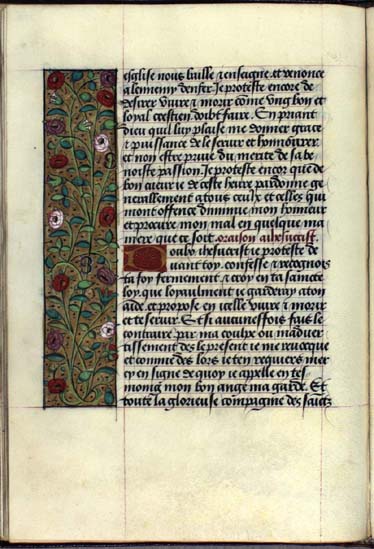 eglise nous baille & enseigne. et renonce
a lennemy denfer. Je proteste encore de
desirer viure & morir cõme vng bon et
loyal crestien doibt faire. En priant
dieu quil luy plaise me donner grace
& puissance de le seruir et honnourer.
et non estre priue du merite de sa be
noiste passion. Je proteste encor que de
bon cueur ie de ceste heure pardonne ge
nerallement a tous ceulx et celles qui
mont offence diminue mon honneur
et procure mon mal en quelque ma
niere que ce soit. oraison a ihesucrist.
Doulx ihesucrist ie proteste de
uant toy. confesse & recognois
ta foy fermement. & croy en ta saincte
loy. que loyaulment ie garderay a ton
aide. et propose en icelle viure & morir
et te seruir. Et si aucunesfois fais le
contraire par ma coulpe ou maduer
tissement des le present ie me reuocque
et comme des lors ie ten requiers mer
cy en signe de quoy ie appelle en tes
moing mon bon ange ma garde. Et
toute la glorieuse compaigne des sainctz